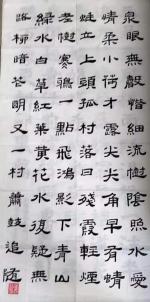 泉眼無聲惜細流樹陰照水愛
晴柔小荷才露尖尖角早有蜻
蜓立上頭孤村落日殘霞輕煙
老樹寒鴉一點飛鴻影下青山
綠水白草紅葉黃花水復疑無
路柳暗花明又一村簫鼓追隨